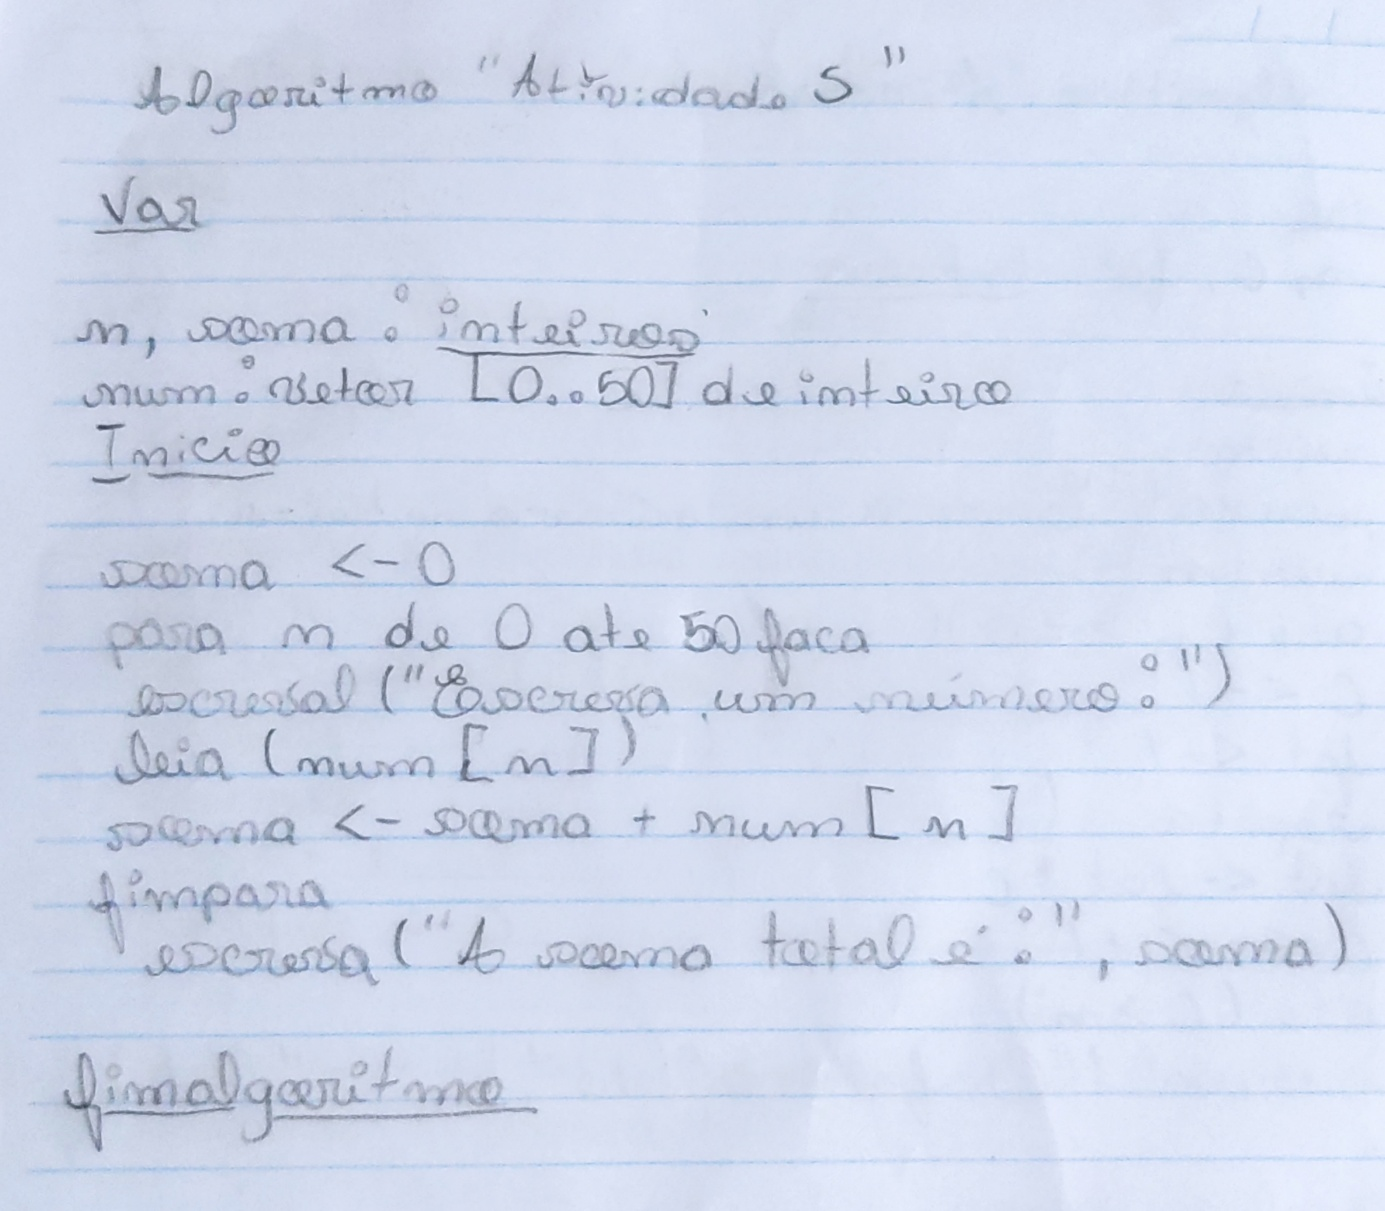 Algoritmo "Atividade 5"
Var
n, soma: inteiros
num: vetor [0..50] de inteiro
Inicio
soma <- 0
para n de 0 ate 50 faca
escreval ("Escreva um número:")
leia (num [n])
soma <- soma + num [n]
fimpara
escreva ("A soma total é:", soma)
fimalgoritmo